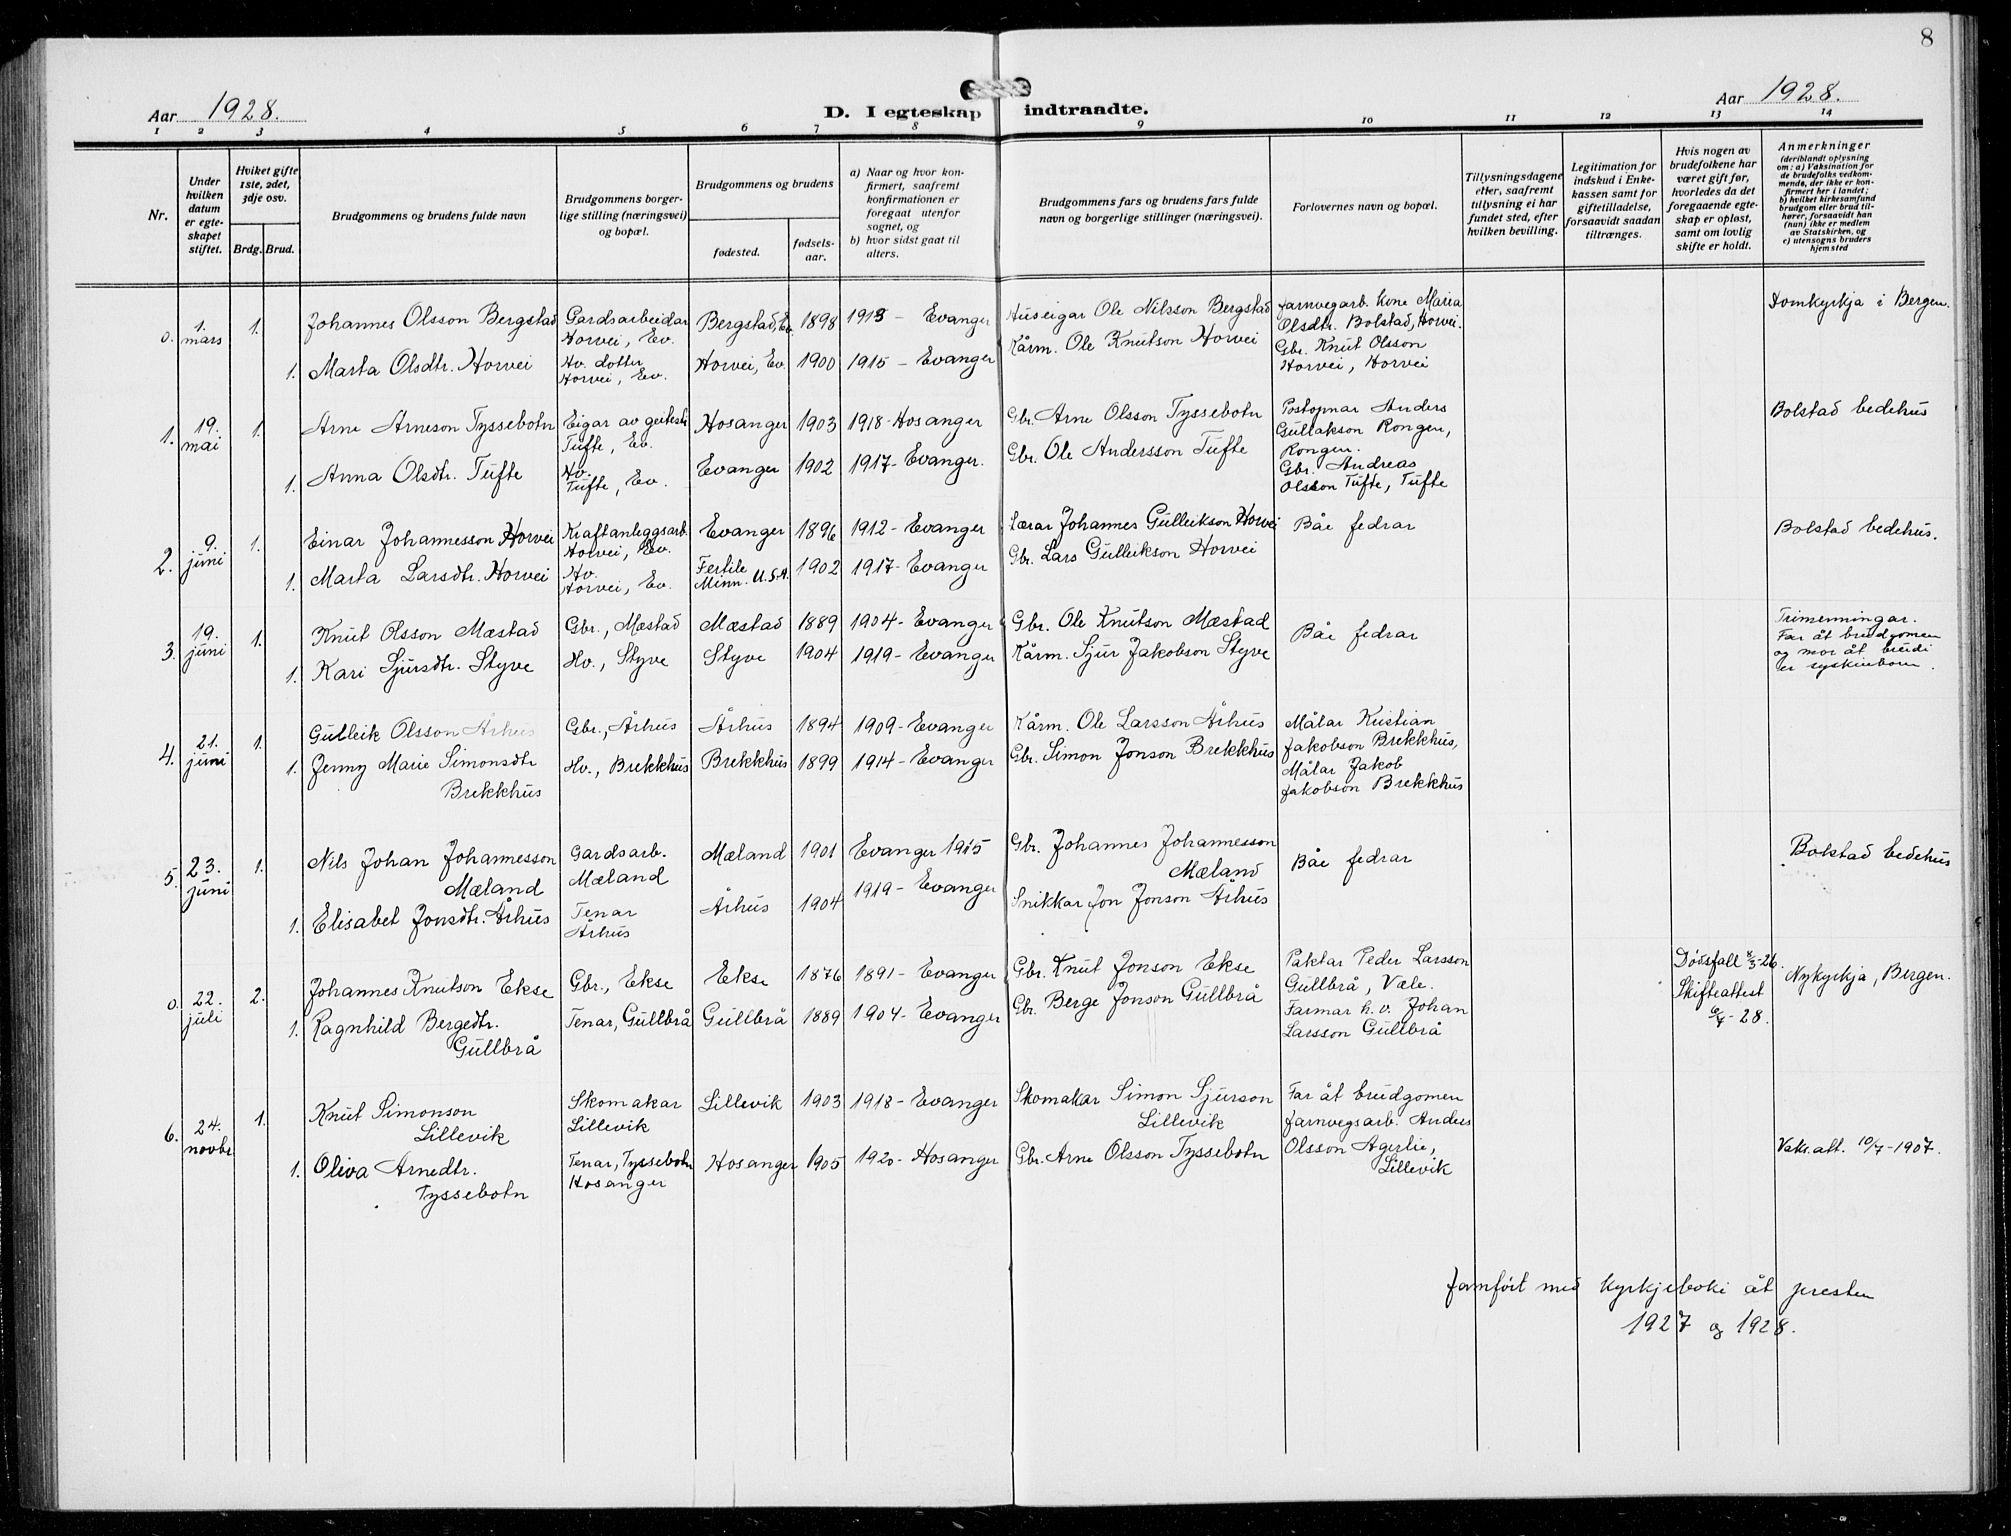 8
Aar 1928.
D. I egteskap indtraadte.
Aar 1928.
1 2 3 4 5 6 7 8 9 10 11 12 13 14
Nr.
Under hvilken datum er egteskapet stiftet.
Hviket gifte 1ste, 2det, 3dje osv.
Brdg. Brud.
Brudgommens og brudens fulde navn
Brudgommens borgerlige stilling (næringsvei) og bopæl.
Brudgommens og brudens
fødested.
fødselsaar.
a) Naar og hvor konfirmert, saafremt konfirmationen er foregaat utenfor sognet, og
b) hvor sidst gaat til alters.
Brudgommens fars og brudens fars fulde navn og borgerlige stillinger (næringsvei).
Forlovernes navn og bopæl.
Tillysningsdagene eller, saafremt tillysning ei har fundet sted, efter hvilken bevilling.
Legitimation for indskud i Enkekassen samt for giftetilladelse, forsaavidt saadan tiltrænges.
Hvis nogen av brudefolkene har været gift før, hvorledes da det foregaaende egteskap er opløst, samt om lovlig skifte er holdt.
Anmerkninger
(deriblandt oplysning om: a) Vaksination for de brudefolks vedkommende, der ikke er konfirmert her i landet; b) hvilket kirkesamfund brudgom eller brud tilhører, forsaavidt han (hun) ikke er medlem av Statskirken, og c) utensogns bruders hjemsted
0. 1. mars 1. Johannes Olsson Bergstad Gardsarbeidar Horvei, Ev. Bergstad, Ev. 1898 1913 - Evanger Huseigar Ole Nilsson Bergstad Jarnvegarb. kone Maria Olsdtr. Bolstad, Horvei. Domkyrkja i Bergen.
1. Marta Olsdtr. Horvei Hv. dotter Horvei, Ev. Horvei, Ev. 1900 1915 - Evanger Kårm. Ole Knutson Horvei Gbr. Knut Olsson Horvei, Horvei
1. 19. mai 1. Arne Arneson Tyssebotn Eigar av Tufte, Ev. Hosanger 1903 1918 - Hosanger Gbr. Arne Olsson Tyssebotn Postopnar Anders Gullakson Rongen, Rongen. Bolstad bedehus
1. Anna Olsdtr. Tufte Hv. Tufte, Ev. Evanger 1902 1917 - Evanger. Gbr. Ole Andersson Tufte Gbr. Andreas Olsson Tufte, Tufte
2. 9. juni 1. Einar Johannesson Horvei Kraftanleggsarb. Horvei, Ev. Evanger 1896 1912 - Evanger Lærar Johannes Gulleikson Horvei Båe fedrar Bolstad bedehus.
1. Marta Larsdtr. Horvei Hv. Horvei, Ev. Fertile Minn. U.S.A. 1902 1917 - Evanger Gbr. Lars Gulleikson Horvei
3. 19. juni 1. Knut Olsson Mæstad Gbr., Mæstad Mæstad 1889 1904 - Evanger Gbr. Ole Knutson Mæstad Båe fedrar Trimenningar. Far åt brudgomen og mor åt brudi er syskinborn.
1. Kari Sjursdtr. Styve Hv., Styve Styve 1904 1919 - Evanger Kårm. Sjur Jakobson Styve
4. 21. juni 1. Gulleik Olsson Århus Gbr., Århus Århus 1894 1909 - Evanger Kårm. Ole Larsson Århus Målar Kristian Jakobson Brekkhus,
1. Jenny Marie Simonsdtr Brekkhus Hv., Brekkhus Brekkhus 1899 1914 - Evanger Gbr. Simon Jonson Brekkhus Målar Jakob Jakobson Brekkhus
5. 23. juni 1. Nils Johan Johannesson Mæland Gardsarb. Mæland Mæland 1901 Evanger 1915 Gbr. Johannes Johannesson Mæland Båe fedrar Bolstad bedehus
1. Elisabet Jonsdtr. Århus Tenar Århus Århus 1904 1919 - Evanger Snikkar Jon Jonson Århus
0. 22. juli 2. Johannes Knutson Ekse Gbr., Ekse Ekse 1876 1891 - Evanger Gbr. Knut Jonson Ekse Paktar Peder Larsson Gullbrå, Væle. Dødsfall 8/3 - 26. Skifteattest 6/7 - 28. Nykyrkja, Bergen.
1. Ragnhild Bergedtr. Gullbrå Tenar, Gullbrå Gullbrå 1889 1904 - Evanger Gb. Berge Jonson Gullbrå Farmar h. v. Johan Larsson Gullbrå
6. 24. novbr 1. Knut Simonson Lillevik Skomakar Lillevik Lillevik 1903 1918 - Evanger Skomakar Simon Sjurson Lillevik Far åt brudgomen
1. Oliva Arnedtr. Tyssebotn Tenar, Tyssebotn Hosanger Hosanger 1905 1920 - Hosanger Gbr. Arne Olsson Tyssebotn Jarnvegsarb. Anders Olsson Agerlie, Lillevik Vaks.att. 10/7 - 1907.
Jamført med kyrkjeboki åt presten
1927 og 1928.